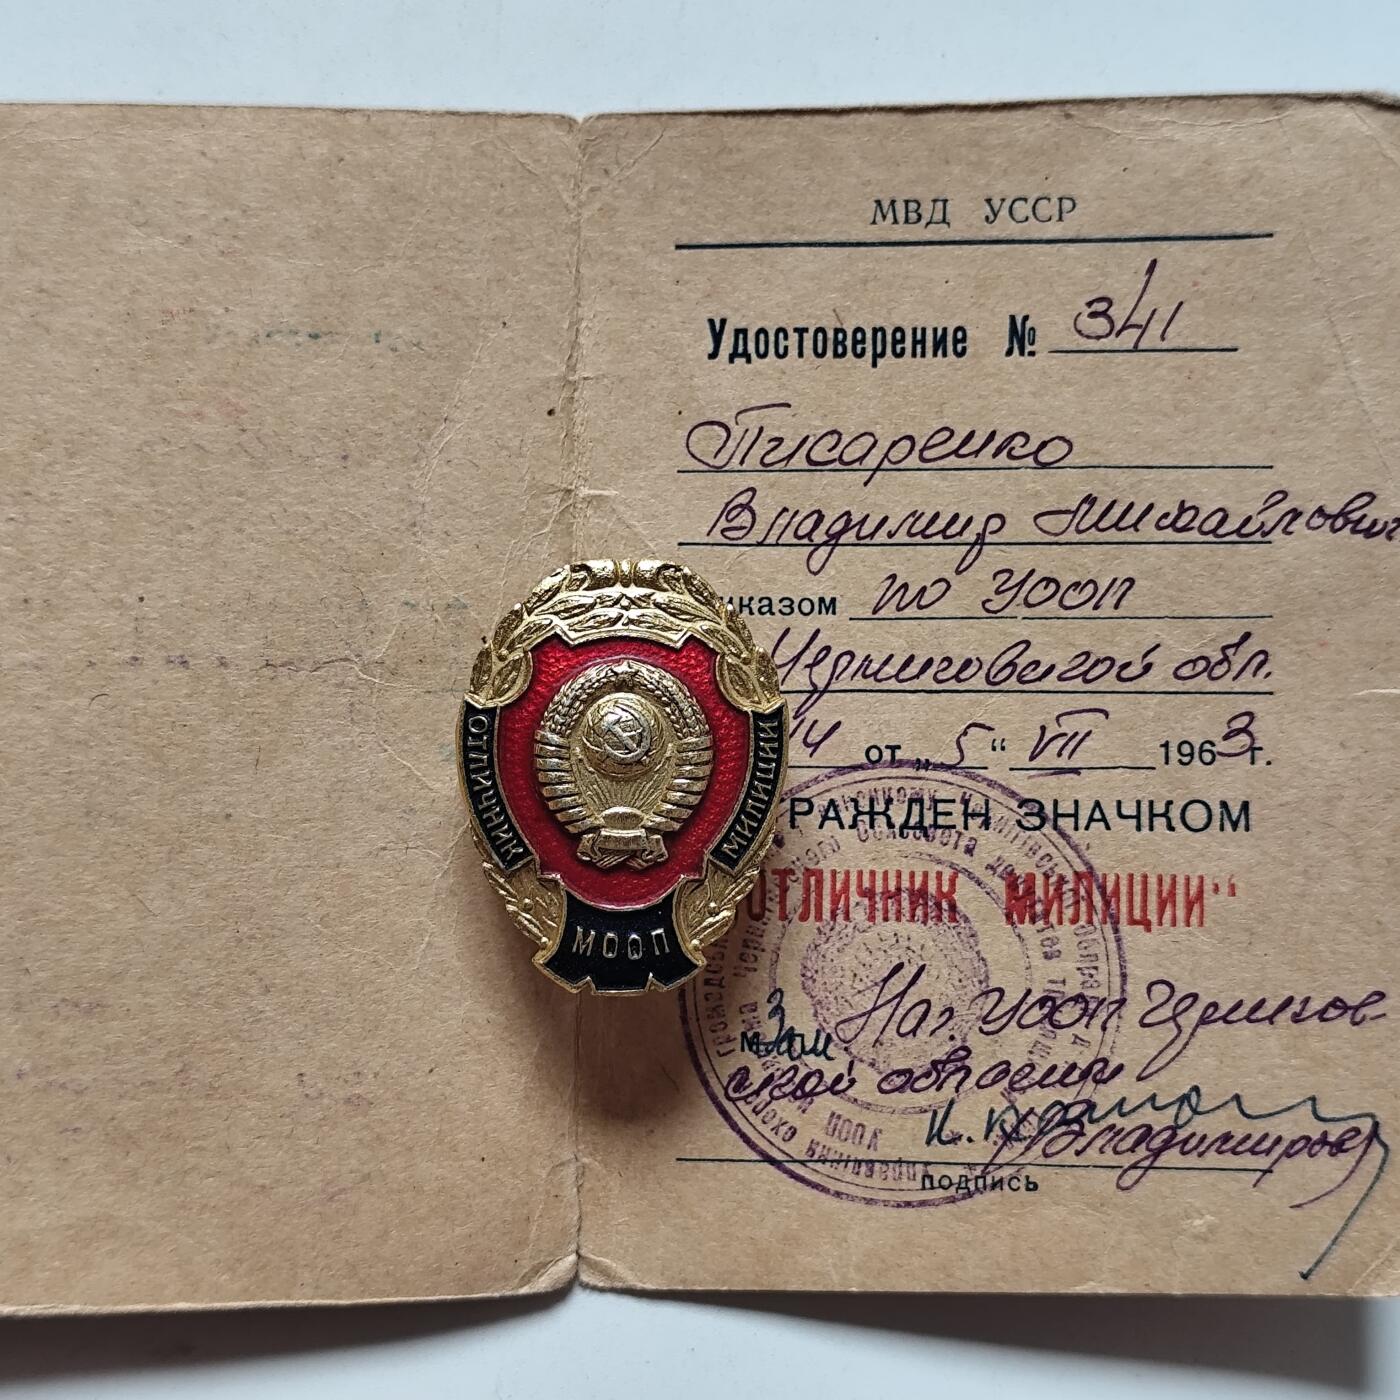 МВД УССР
Удостоверение № 341
Писаренко
Владимир Михайлович
иказом по УООП
Черниговской обл.
14 от „5“ VII 1963г.
РАЖДЕН ЗНАЧКОМ
ОТЛИЧНИК МИЛИЦИИ“
Зам Нач УООП Чернигов
ской области
Владимиров
подпись
ОТЛИЧНИК
МИЛИЦИИ
МООП